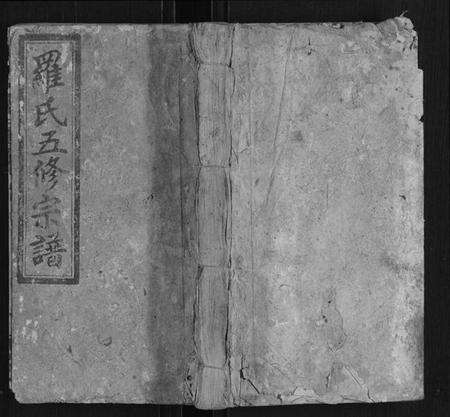 羅氏五修宗譜